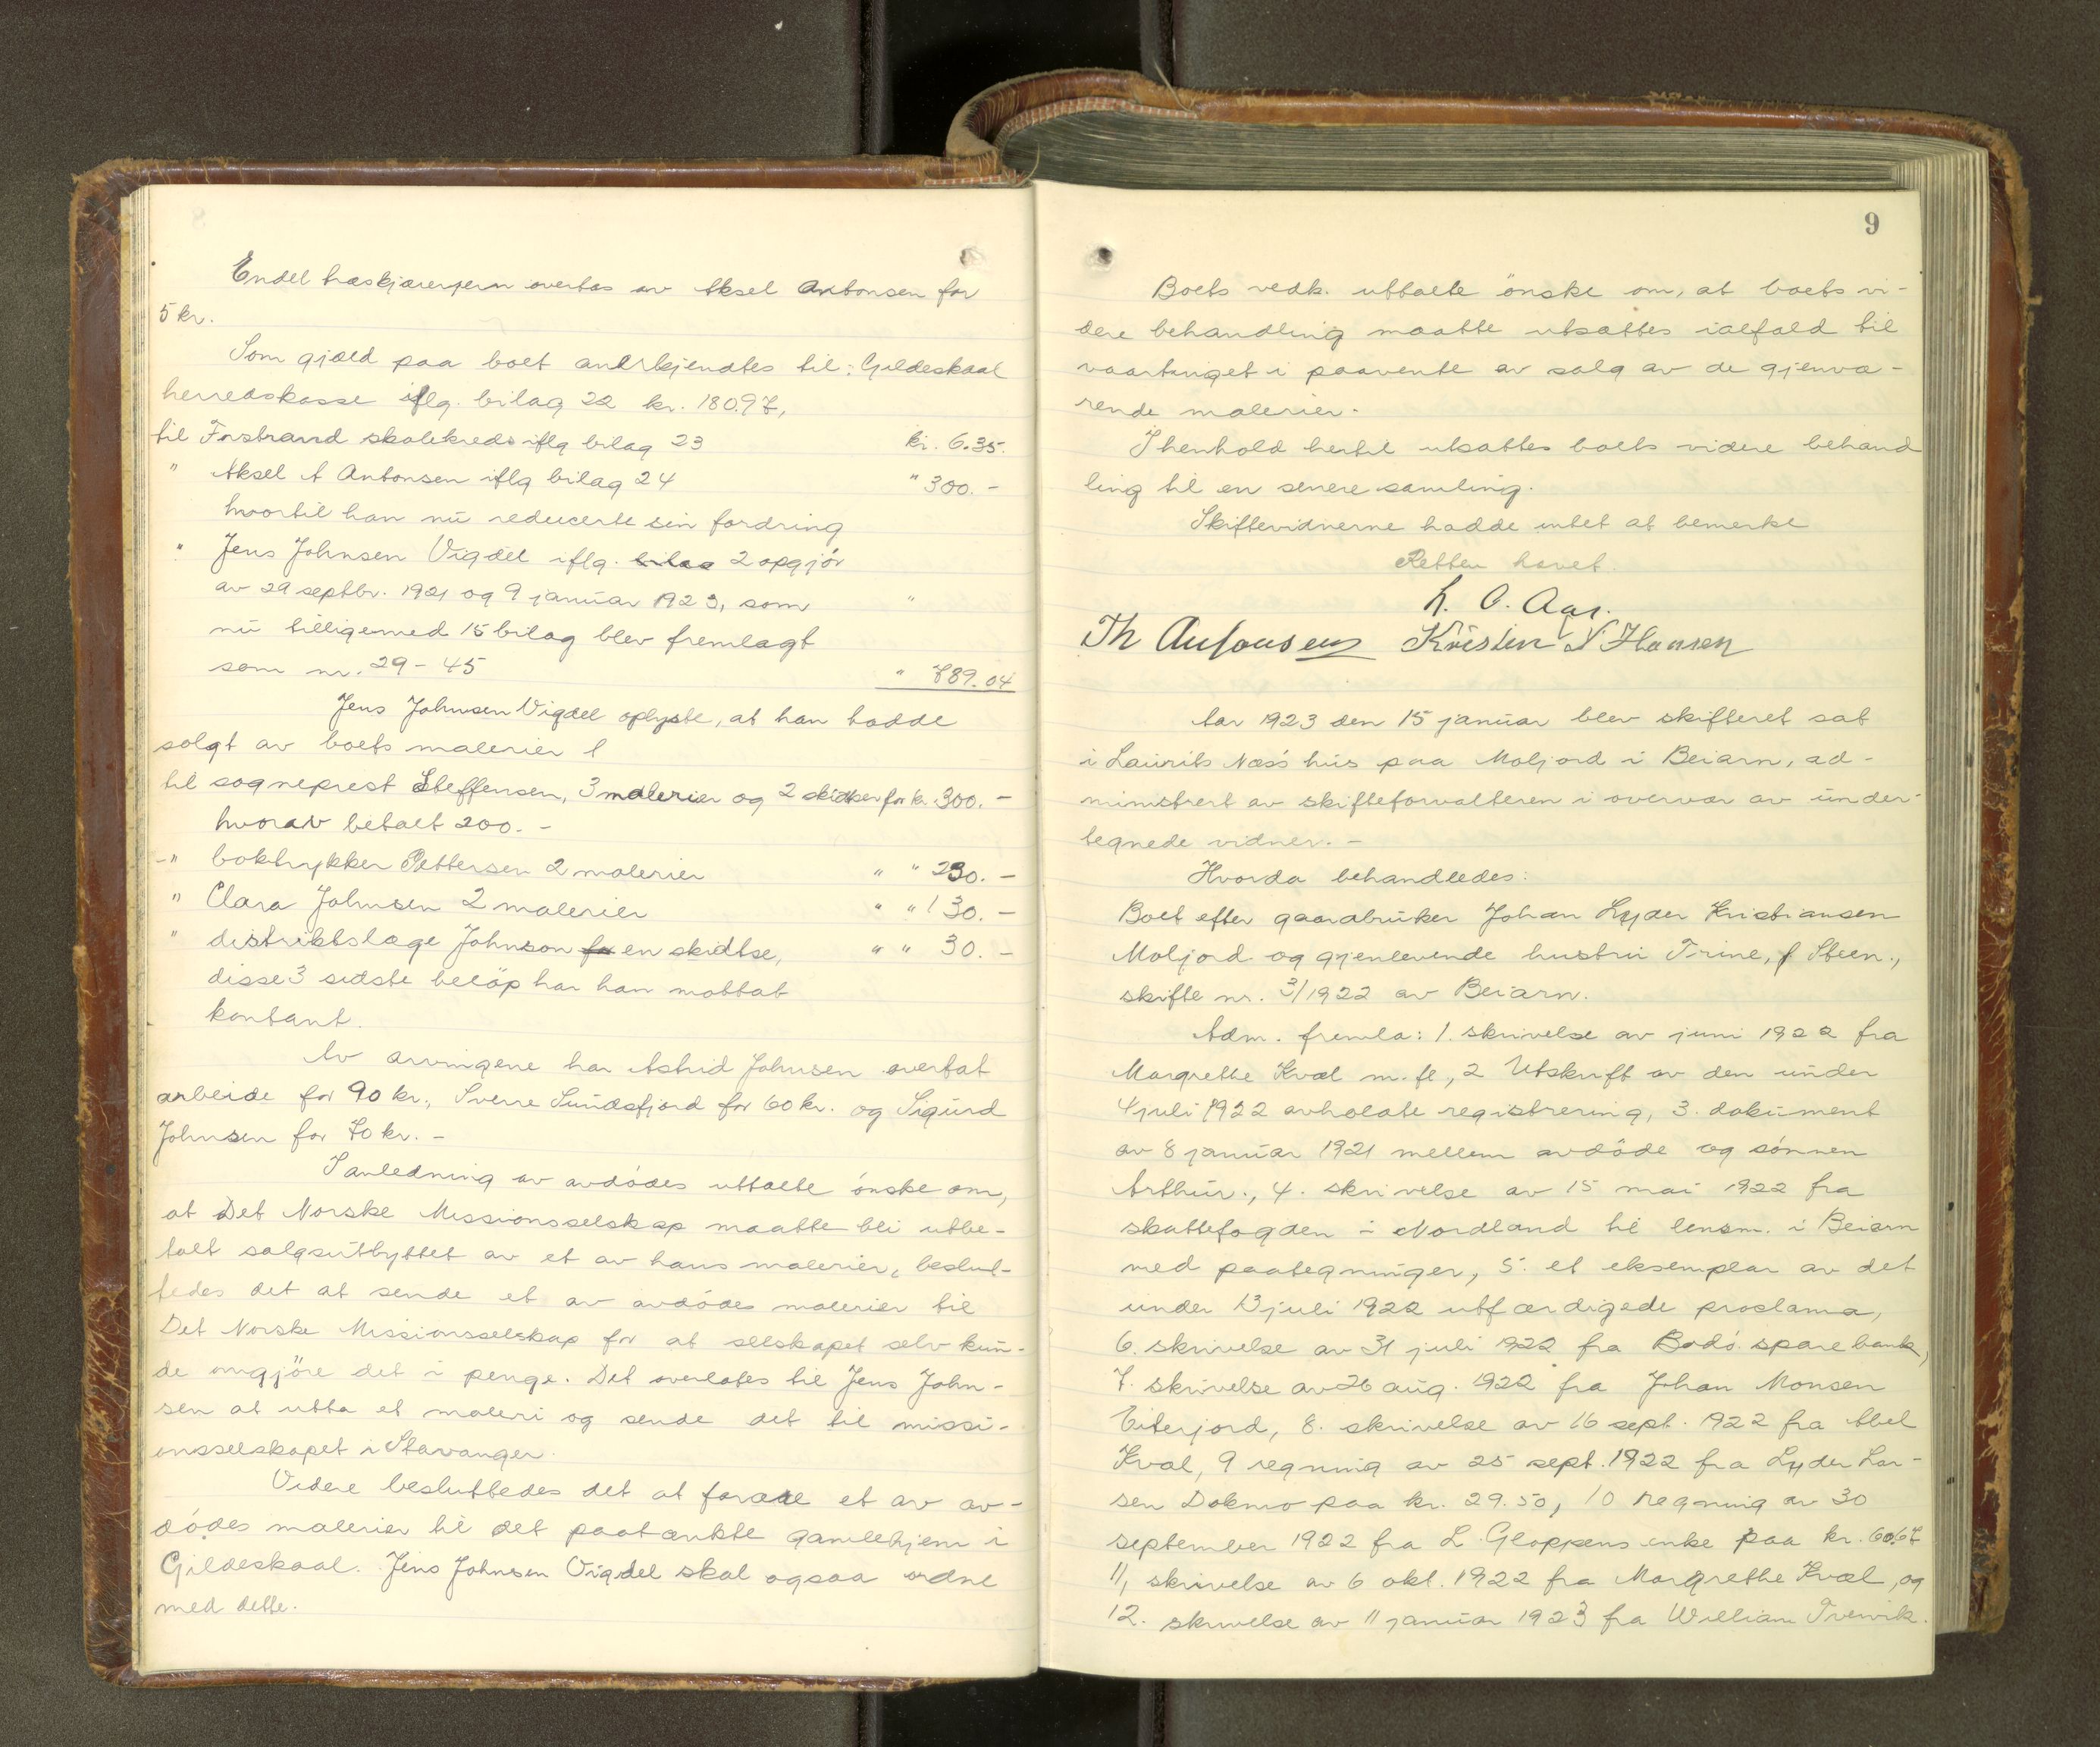 Endel træskjærerjern overtas av Aksel Antonsen for
5 kr.
Som gjæld paa boet anerkjendtes til: Gildeskaal
herredskasse iflg. bilag 22 kr. 180.97,
til Forstrand skolekreds iflg bilag 23 kr. 6.35.
" Aksel A Antonsen iflg bilag 24 " 300.-
hvortil han nu reducerte sin fordring
" Jens Johnsen Vigdel iflg. bilag 2 opgjör
av 29 septbr. 1921 og 9 januar 1923, som "
nu tilligemed 15 bilag blev fremlagt
som nr. 29-45 " 789.04
Jens Johnsen Vigdel oplyste, at han hadde
solgt av boets malerier
til sogneprest Steffensen, 3 malerier og 2 skidser for kr. 300.-
hvorav betalt 200.-
-" boktrykker Pettersen 2 malerier " " 230.-
" Clara Johnsen 2 malerier " " 130.-
" distriktslæge Johnson for en skidtse, " " 30.-
disse 3 sidste belöp har han mottat
kontant.
Av arvingene har Astrid Johnsen overtat
arbeide for 90 kr., Sverre Sundsfjord for 60 kr. og Sigurd
Johnsen for 70 kr.-
I anledning av avdödes uttalte önske om,
at Det Norske Missionsselskap maatte bli utbe-
talt salgsutbyttet av et av hans malerier, beslut-
tedes det at sende et av avdödes malerier til
Det Norske Missionsselskap for at selskapet selv kun-
de omgjöre det i penge. Det overlates til Jens John-
sen at utta et maleri og sende det til missi-
onsselskapet i Stavanger.
Videre besluttedes det at forære et av av-
dödes malerier til det paatænkte gamlehjem i
Gildeskaal. Jens Johnsen Vigdel skal ogsaa ordne
med dette.
9
Boets vedk. uttalte önske om, at boets vi-
dere behandling maatte utsættes ialfald til
vaartinget i paavente av salg av de gjenvæ-
rende malerier.
I henhold hertil utsattes boets videre behand
ling til en senere samling.
Skiftevidnerne hadde intet at bemerke
Retten hævet.
L. O. Aar.
Th Antonsen Kristen N Hansen
Aar 1923 den 15 januar blev skifteret sat
i Laurits Næss' hus paa Moljord i Beiarn, ad-
ministrert av skifteforvalteren i overvær av under-
tegnede vidner.-
Hvorda behandledes:
Boet efter gaardbruker Johan Lyder Kristiansen
Moljord og gjenlevende hustru Trine, f Steen.,
skifte nr. 3/1922 av Beiarn.
Adm. fremla: 1. skrivelse av juni 1922 fra
Margrethe Kvæl m. fl, 2 Utskrift av den under
4 juli 1922 avholdte registrering, 3. dokument
av 8 januar 1921 mellem avdöde og sönnen
Arthur., 4. skrivelse av 15 mai 1922 fra
skattefogden i Nordland til lensm. i Beiarn
med paategninger, 5. et eksemplar av det
under 13 juli 1922 utfærdigede proclama,
6. skrivelse av 31 juli 1922 fra Bodö sparebank,
7. skrivelse av 26 aug. 1922 fra Johan Monsen
Eiterjord, 8. skrivelse av 16 sept. 1922 fra Abel
Kvæl, 9 regning av 25 sept. 1922 fra Lyder Lar-
sen Dokmo paa kr. 29.50, 10 regning av 30
september 1922 fra L. Gloppens enke paa kr. 60.67
11, skrivelse av 6 okt. 1922 fra Margrethe Kvæl, og
12. skrivelse av 11 januar 1923 fra William Trevvik.